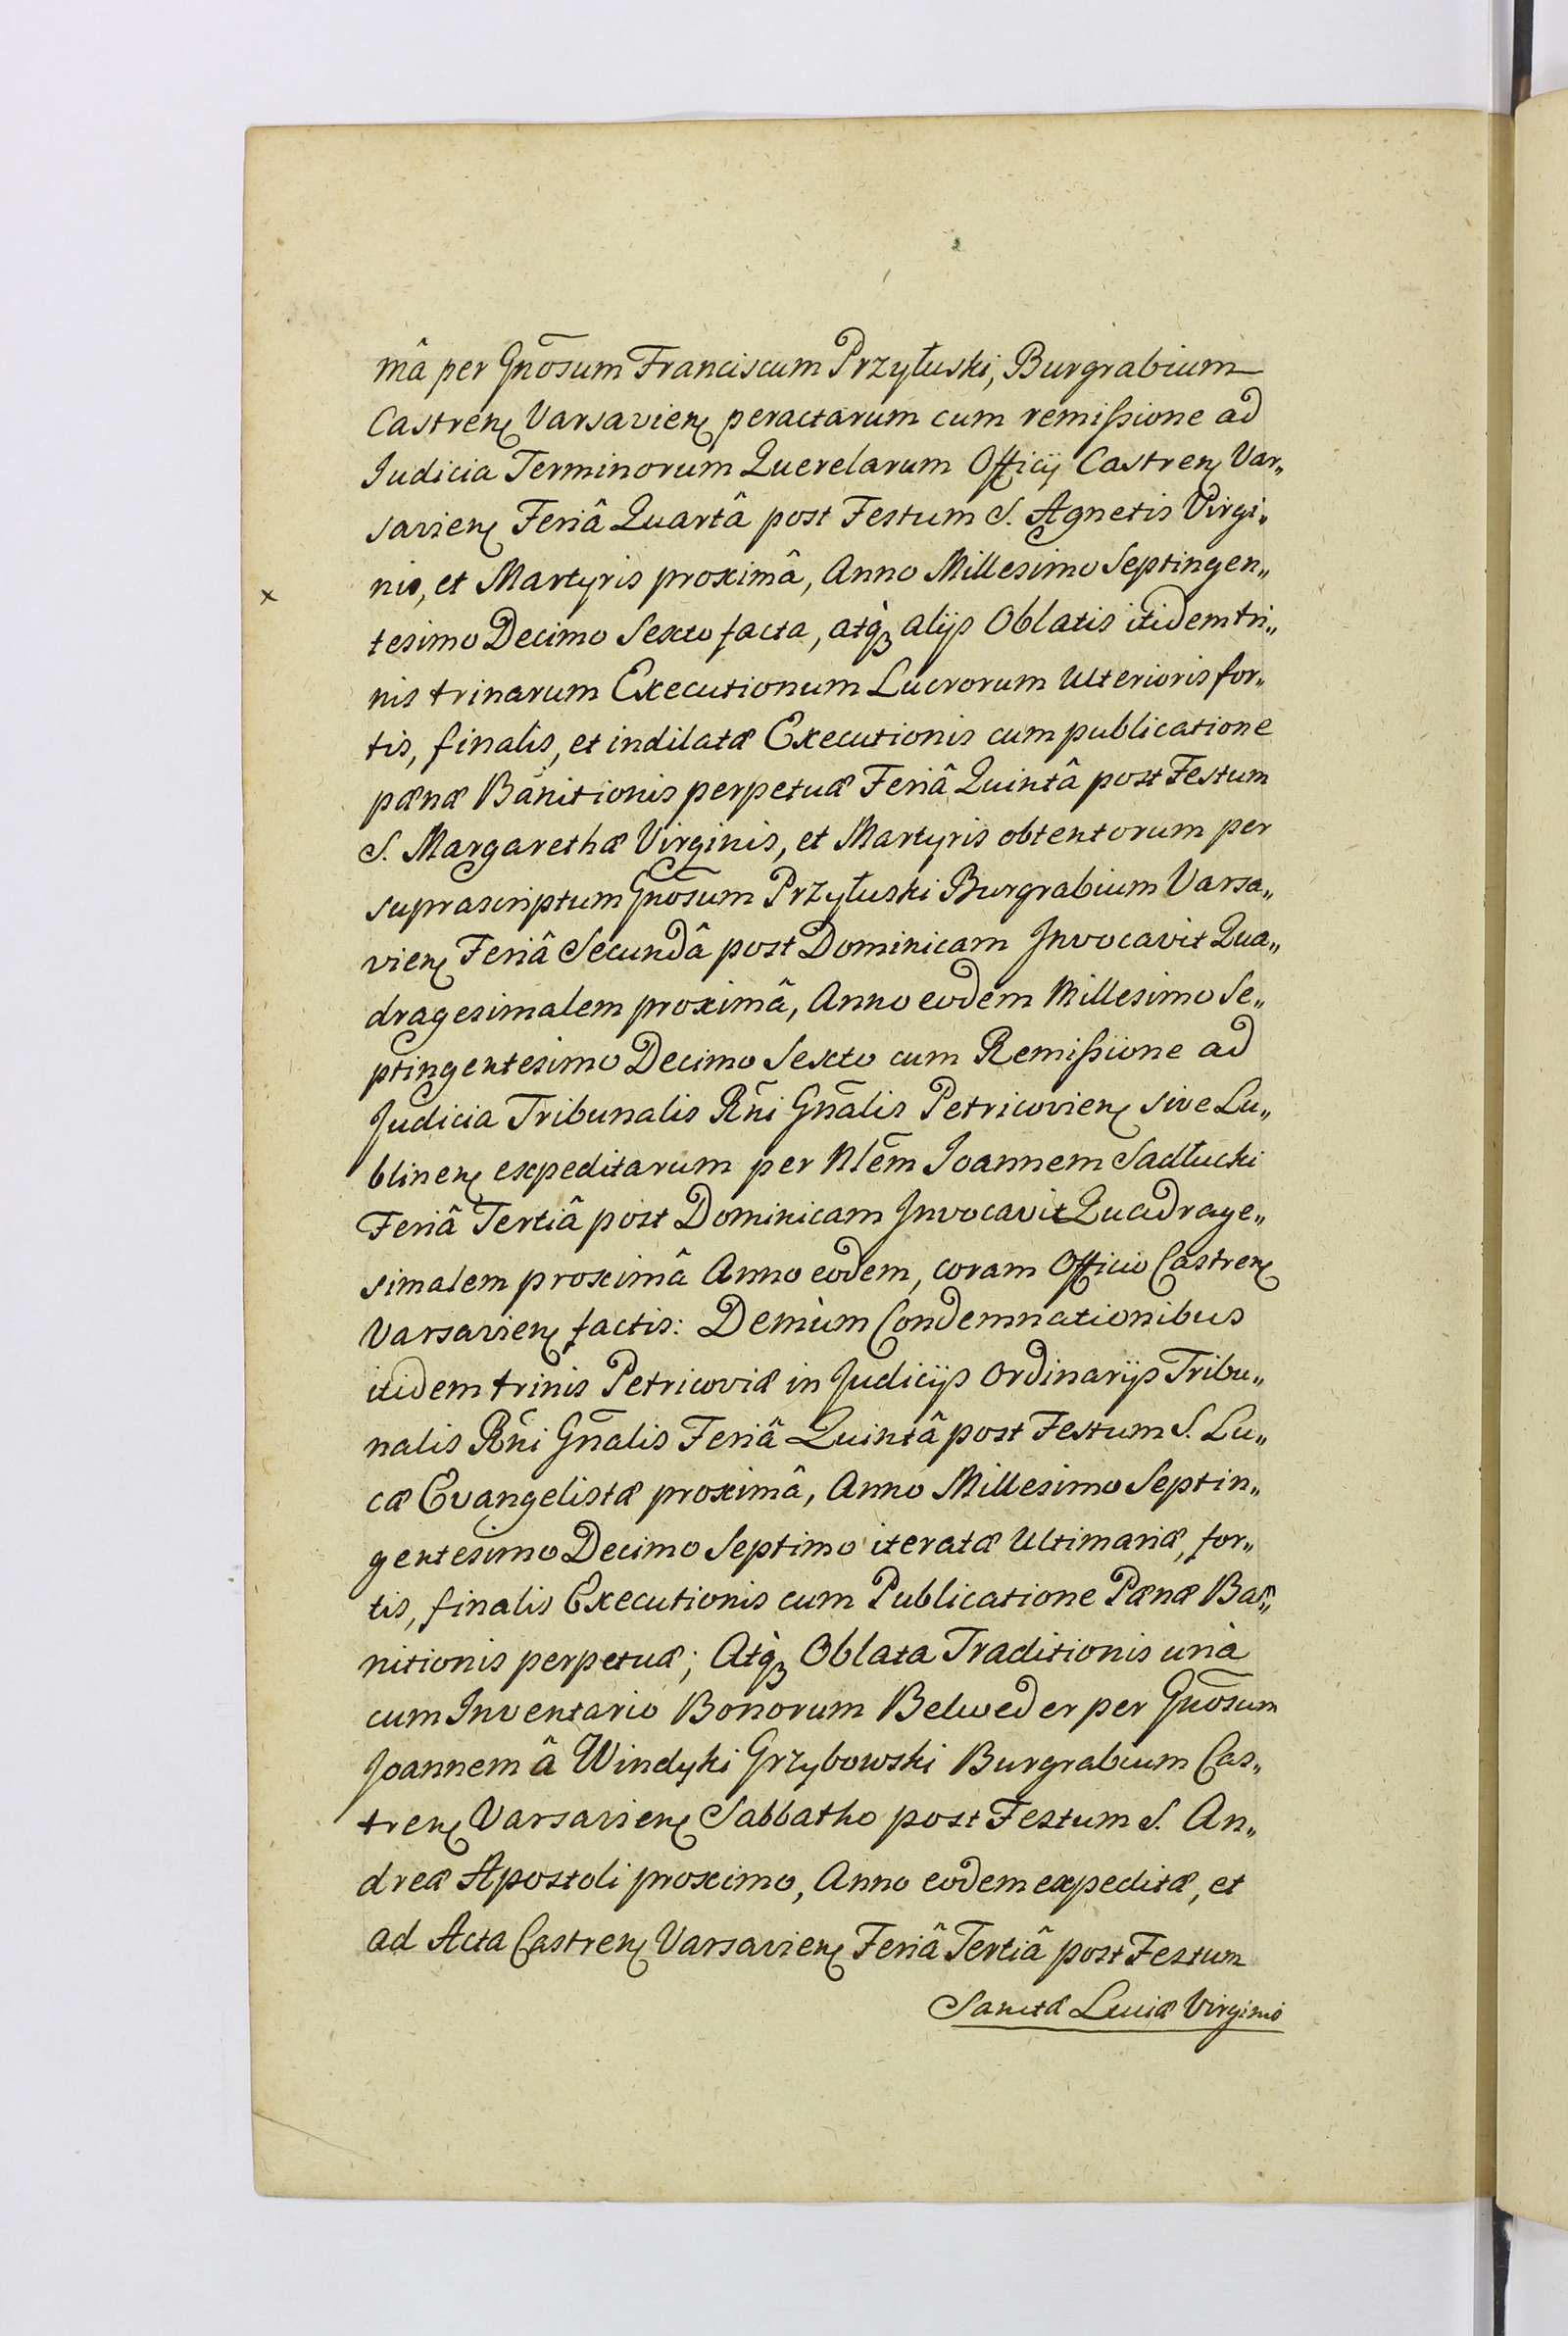 mâ per Gnōsum Franciscum Przyłuski, Burgrabium
Castren̨ Varsavien̨ peractarum cum remißione ad
Judicia Terminorum Querelarum Officij Castren̨ Var„
savien̨ Feriâ Quartâ post Festum S. Agnetis Virgi„
nis, et Martyris proximâ, Anno Millesimo Septingen„
tesimo Decimo Sexto facta, atq̀ȝ alijs Oblatis itidem tri„
nis trinarum Executionum Lucrorum Ulterioris for„
tis, finalis, et indilatæ Executionis cum publicatione
pænæ Bānitionis perpetuæ Feriâ Quintâ post Festum
S. Margarethæ Virginis, et Martyris obtentorum per
suprascriptum Gnōsum Przyłuski Burgrabium Varsa„
vien̨ Feriâ Secundâ post Dominicam Invocavit Qua„
dragesimalem proximâ, Anno eodem Millesimo Se„
ptingentesimo Decimo Sexto cum Remißione ad
Judicia Tribunalis Rn̄i Gn̄alis Petricovien̨ sive Lu„
blinen̨ expeditarum per Nlēm Joannem Sadłucki
Feriâ Tertiâ post Dominicam Invocavit Quadrage„
simalem proximâ Anno eodem, coram Officio Castren̨
Varsavien̨ factis: Demùm Condemnationibus
itidem trinis Petricoviæ in Judicijs Ordinarijs Tribu„
nalis Rn̄i Gn̄alis Feriâ Quintâ post Festum S. Lu„
cæ Evangelistæ proximâ, Anno Millesimo Septin„
gentesimo Decimo Septimo iteratæ Ultimariæ, for„
tis, finalis Executionis cum Publicatione Pænæ Bañ„
nitionis perpetuæ; Atq̀ȝ Oblata Traditionis unà
cum Inventario Bonorum Belweder per Gnōsum
Joannem â Windyki Grzybowski Burgrabium Cas„
tren̨ Varsavien̨ Sabbatho post Festum S. An„
dreæ Apostoli proximo, Anno eodem expeditæ, et
ad Acta Castren̨ Varsavien̨ Feriâ Tertiâ post Festum
Sanctæ Luciæ Virginis